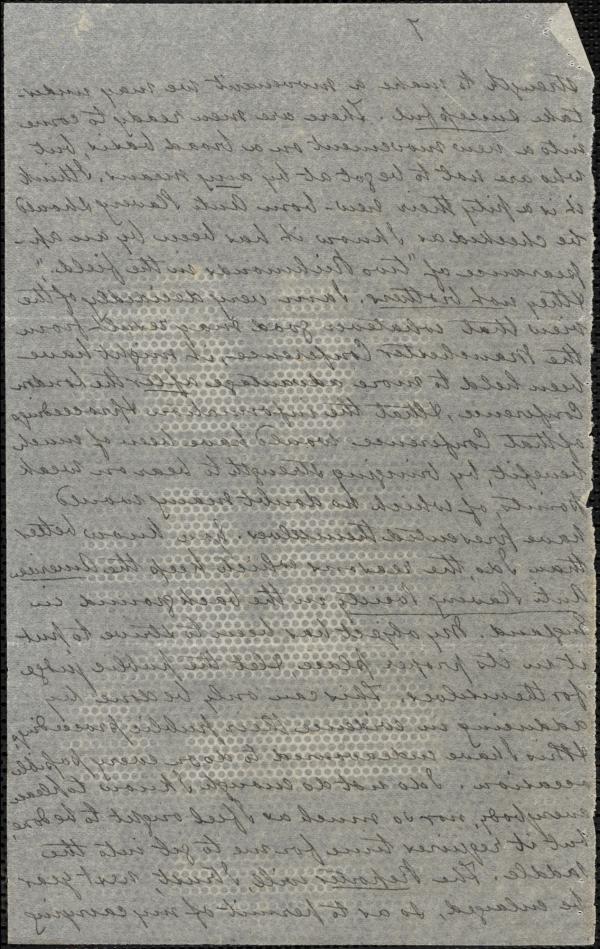 7
strength to make a movement we may under-
take successful. There are men ready to come
into a new movement on a broad basis, but
who are not to be got at by any means. I think
it is a pity their new-born Anti Slavery should
be checked as I know it has been by an ap-
pearance of "two Richmonds in the field."
& they not brothers. I am very decidedly of the
view that whatever good may result from
the Manchester Conference, it might have
been held to more advantage after the London
Conference, & that the information & proceedings
of that Conference would have been of much
benefit, by bringing strength to bear on weak
points, of which no doubt many would
have presented themselves. You know better
than I do, the reasons which keep the American
Anti Slavery Society in the background in
England. My object has been to strive to put
it in its proper place, & let the public judge
for themselves. This can only be done by
adducing in evidence their public proceedings,
& this I have endeavored to do on every possible
occasion. I do not do enough I know to please
everybody, nor so much as I feel ought to be done,
but it requires time for me to get into the
saddle. The Reporter will, I trust, next year
be enlarged, so as to permit of my carrying